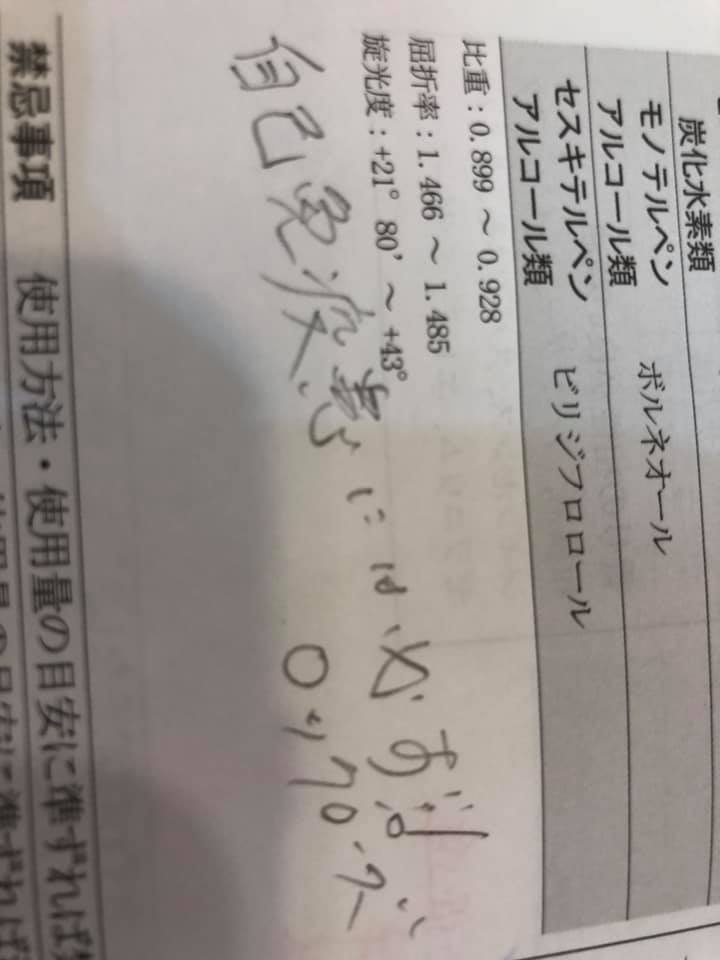 炭化水素類
モノテルペン ボルネオール
アルコール類
セスキテルペン ビリジフロロール
アルコール類
比重：0.899 ～ 0.928
屈折率：1.466 ～ 1.485
旋光度：+21° 80' ～ +43°
自己免疫 には必ず
禁忌事項 使用方法・使用量の目安に準ずれば